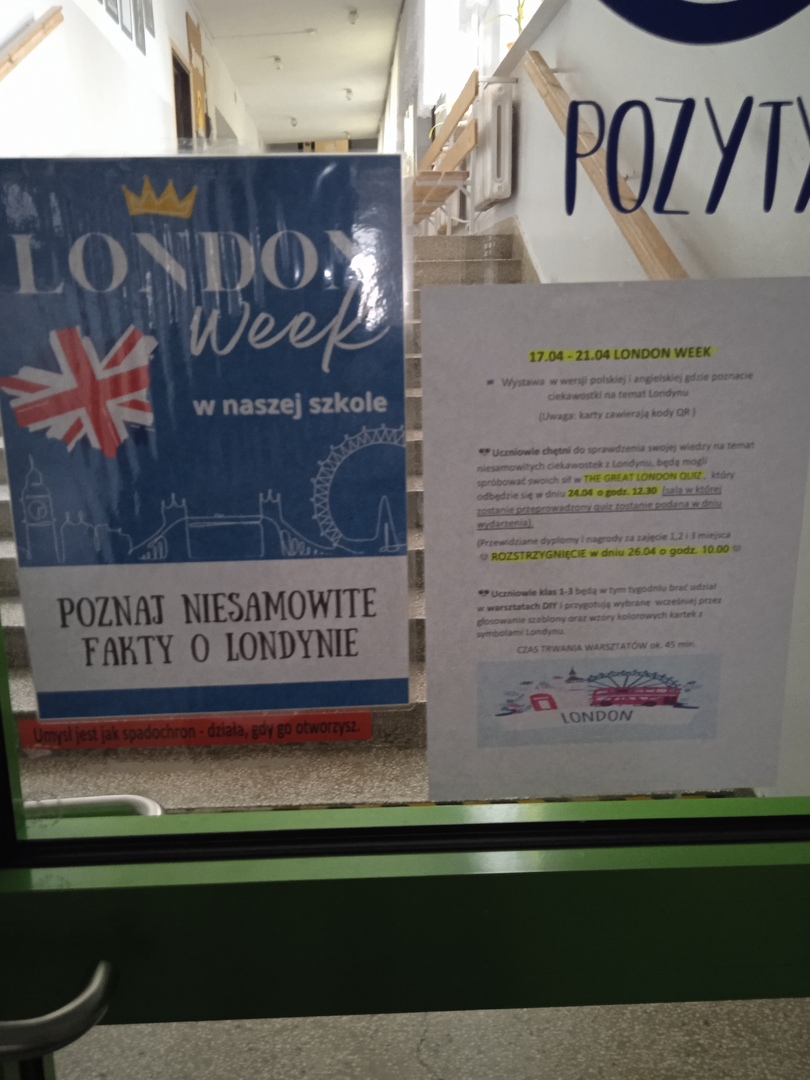 POZYTY
LONDON
Week
w naszej szkole
POZNAJ NIESAMOWITE
FAKTY O LONDYNIE
Umysł jest jak spadochron - działa, gdy go otworzysz.
17.04 - 21.04 LONDON WEEK
Wystawa w wersji polskiej i angielskiej gdzie poznacie
ciekawostki na temat Londynu
(Uwaga: karty zawierają kody QR )
Uczniowie chętni do sprawdzenia swojej wiedzy na temat
niesamowitych ciekawostek z Londynu, będą mogli
spróbować swoich sił w THE GREAT LONDON QUIZ, który
odbędzie się w dniu 24.04 o godz. 12.30 (sala w której
zostanie przeprowadzony quiz zostanie podana w dniu
wydarzenia).
(Przewidziane dyplomy i nagrody za zajęcie 1,2 i 3 miejsca
ROZSTRZYGNIĘCIE w dniu 26.04 o godz. 10.00
Uczniowie klas 1-3 będą w tym tygodniu brać udział
w warsztatach DIY i przygotują wybrane wcześniej przez
głosowanie szablony oraz wzory kolorowych kartek z
symbolami Londynu.
CZAS TRWANIA WARSZTATÓW ok. 45 min.
LONDON